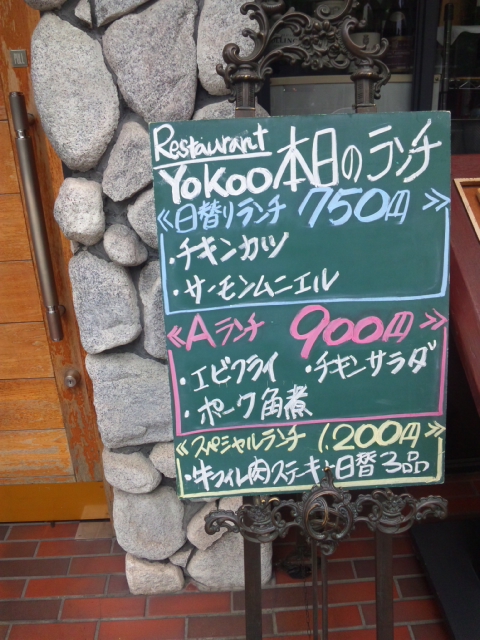 Restaurant
YOKOO 本日のランチ
≪日替りランチ 750円≫
・チキンカツ
・サーモンムニエル
≪Aランチ 900円≫
・エビフライ ・チキンサラダ
・ポーク角煮
≪スペシャルランチ 1.200円≫
・牛フィレ肉ステーキ+日替3品